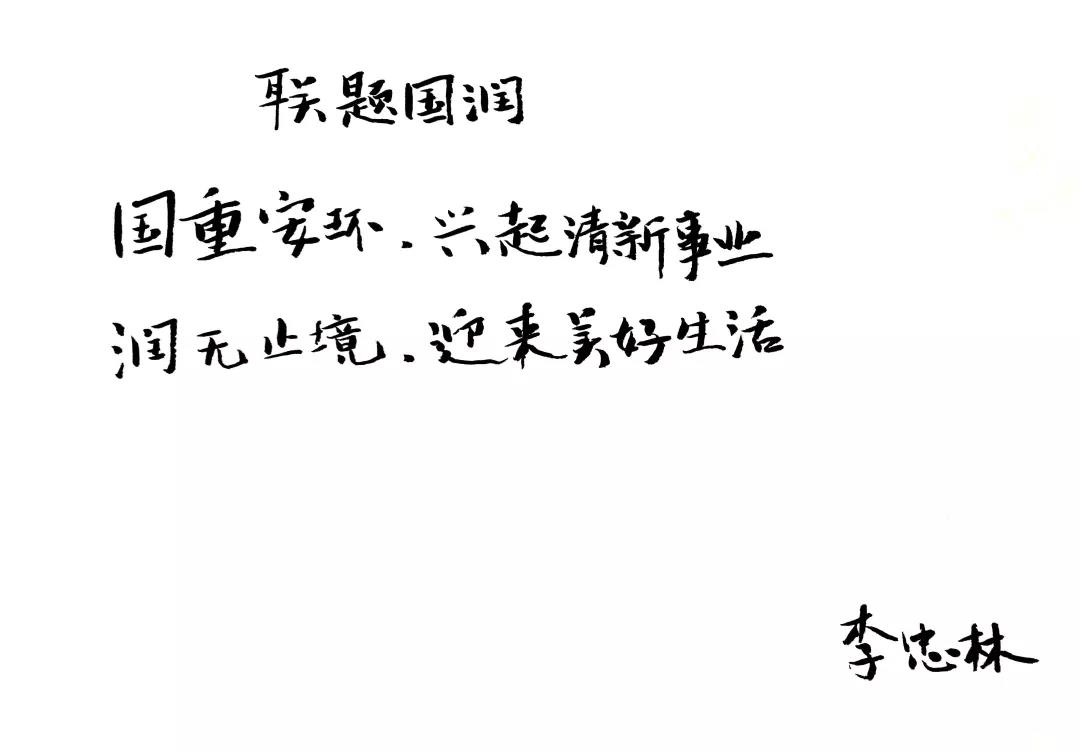 联题国润
国重安环.兴起清新事业
润无止境.迎来美好生活
李忠林